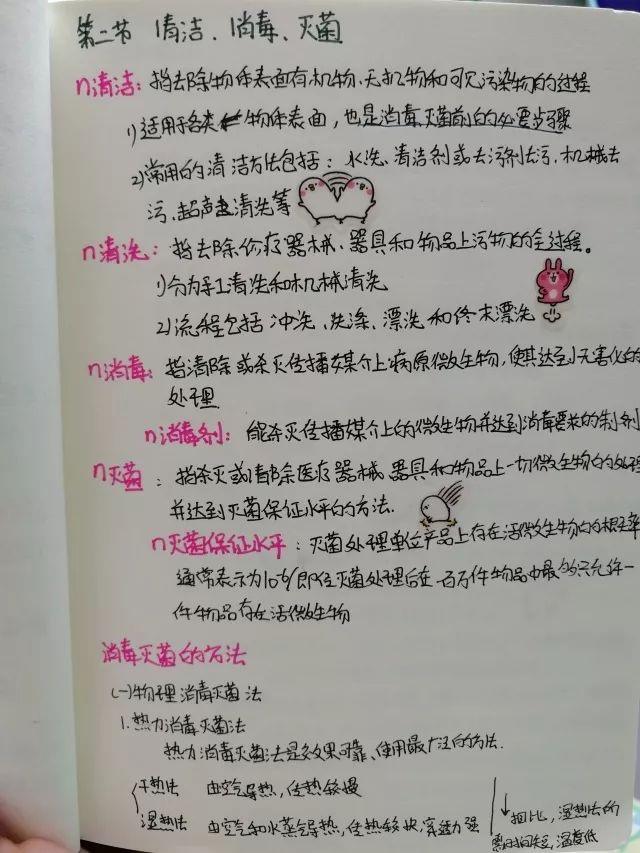 第二节 清洁、消毒、灭菌
n清洁：指去除物体表面有机物、无机物和可见污染物的过程
1)适用于各类物体表面，也是消毒灭菌前的必要步骤
2)常用的清洁方法包括：水洗、清洁剂或去污剂去污、机械去
污、超声清洗等
n清洗：指去除诊疗器械、器具和物品上污物的全过程。
1)分为手工清洗和机械清洗
2)流程包括冲洗、洗涤、漂洗和终末漂洗
n消毒：指清除或杀灭传播媒介上病原微生物，使其达到无害化的
处理
n消毒剂：能杀灭传播媒介上的微生物并达到消毒要求的制剂
n灭菌：指杀灭或清除医疗器械、器具和物品上一切微生物的处理
并达到灭菌保证水平的方法.
n灭菌保证水平：灭菌处理单位产品上存在活微生物的概率
通常表示为10⁻⁶/即经灭菌处理后在一百万件物品中最多只允许一
件物品存在活微生物
消毒灭菌的方法
(一)物理消毒灭菌法
1.热力消毒灭菌法
热力消毒灭菌法是效果可靠、使用最广泛的方法.
干热法 由空气导热，传热较慢
湿热法 由空气和水蒸气导热，传热较快，穿透力强
↓相比，湿热法的
需时间短，温度低